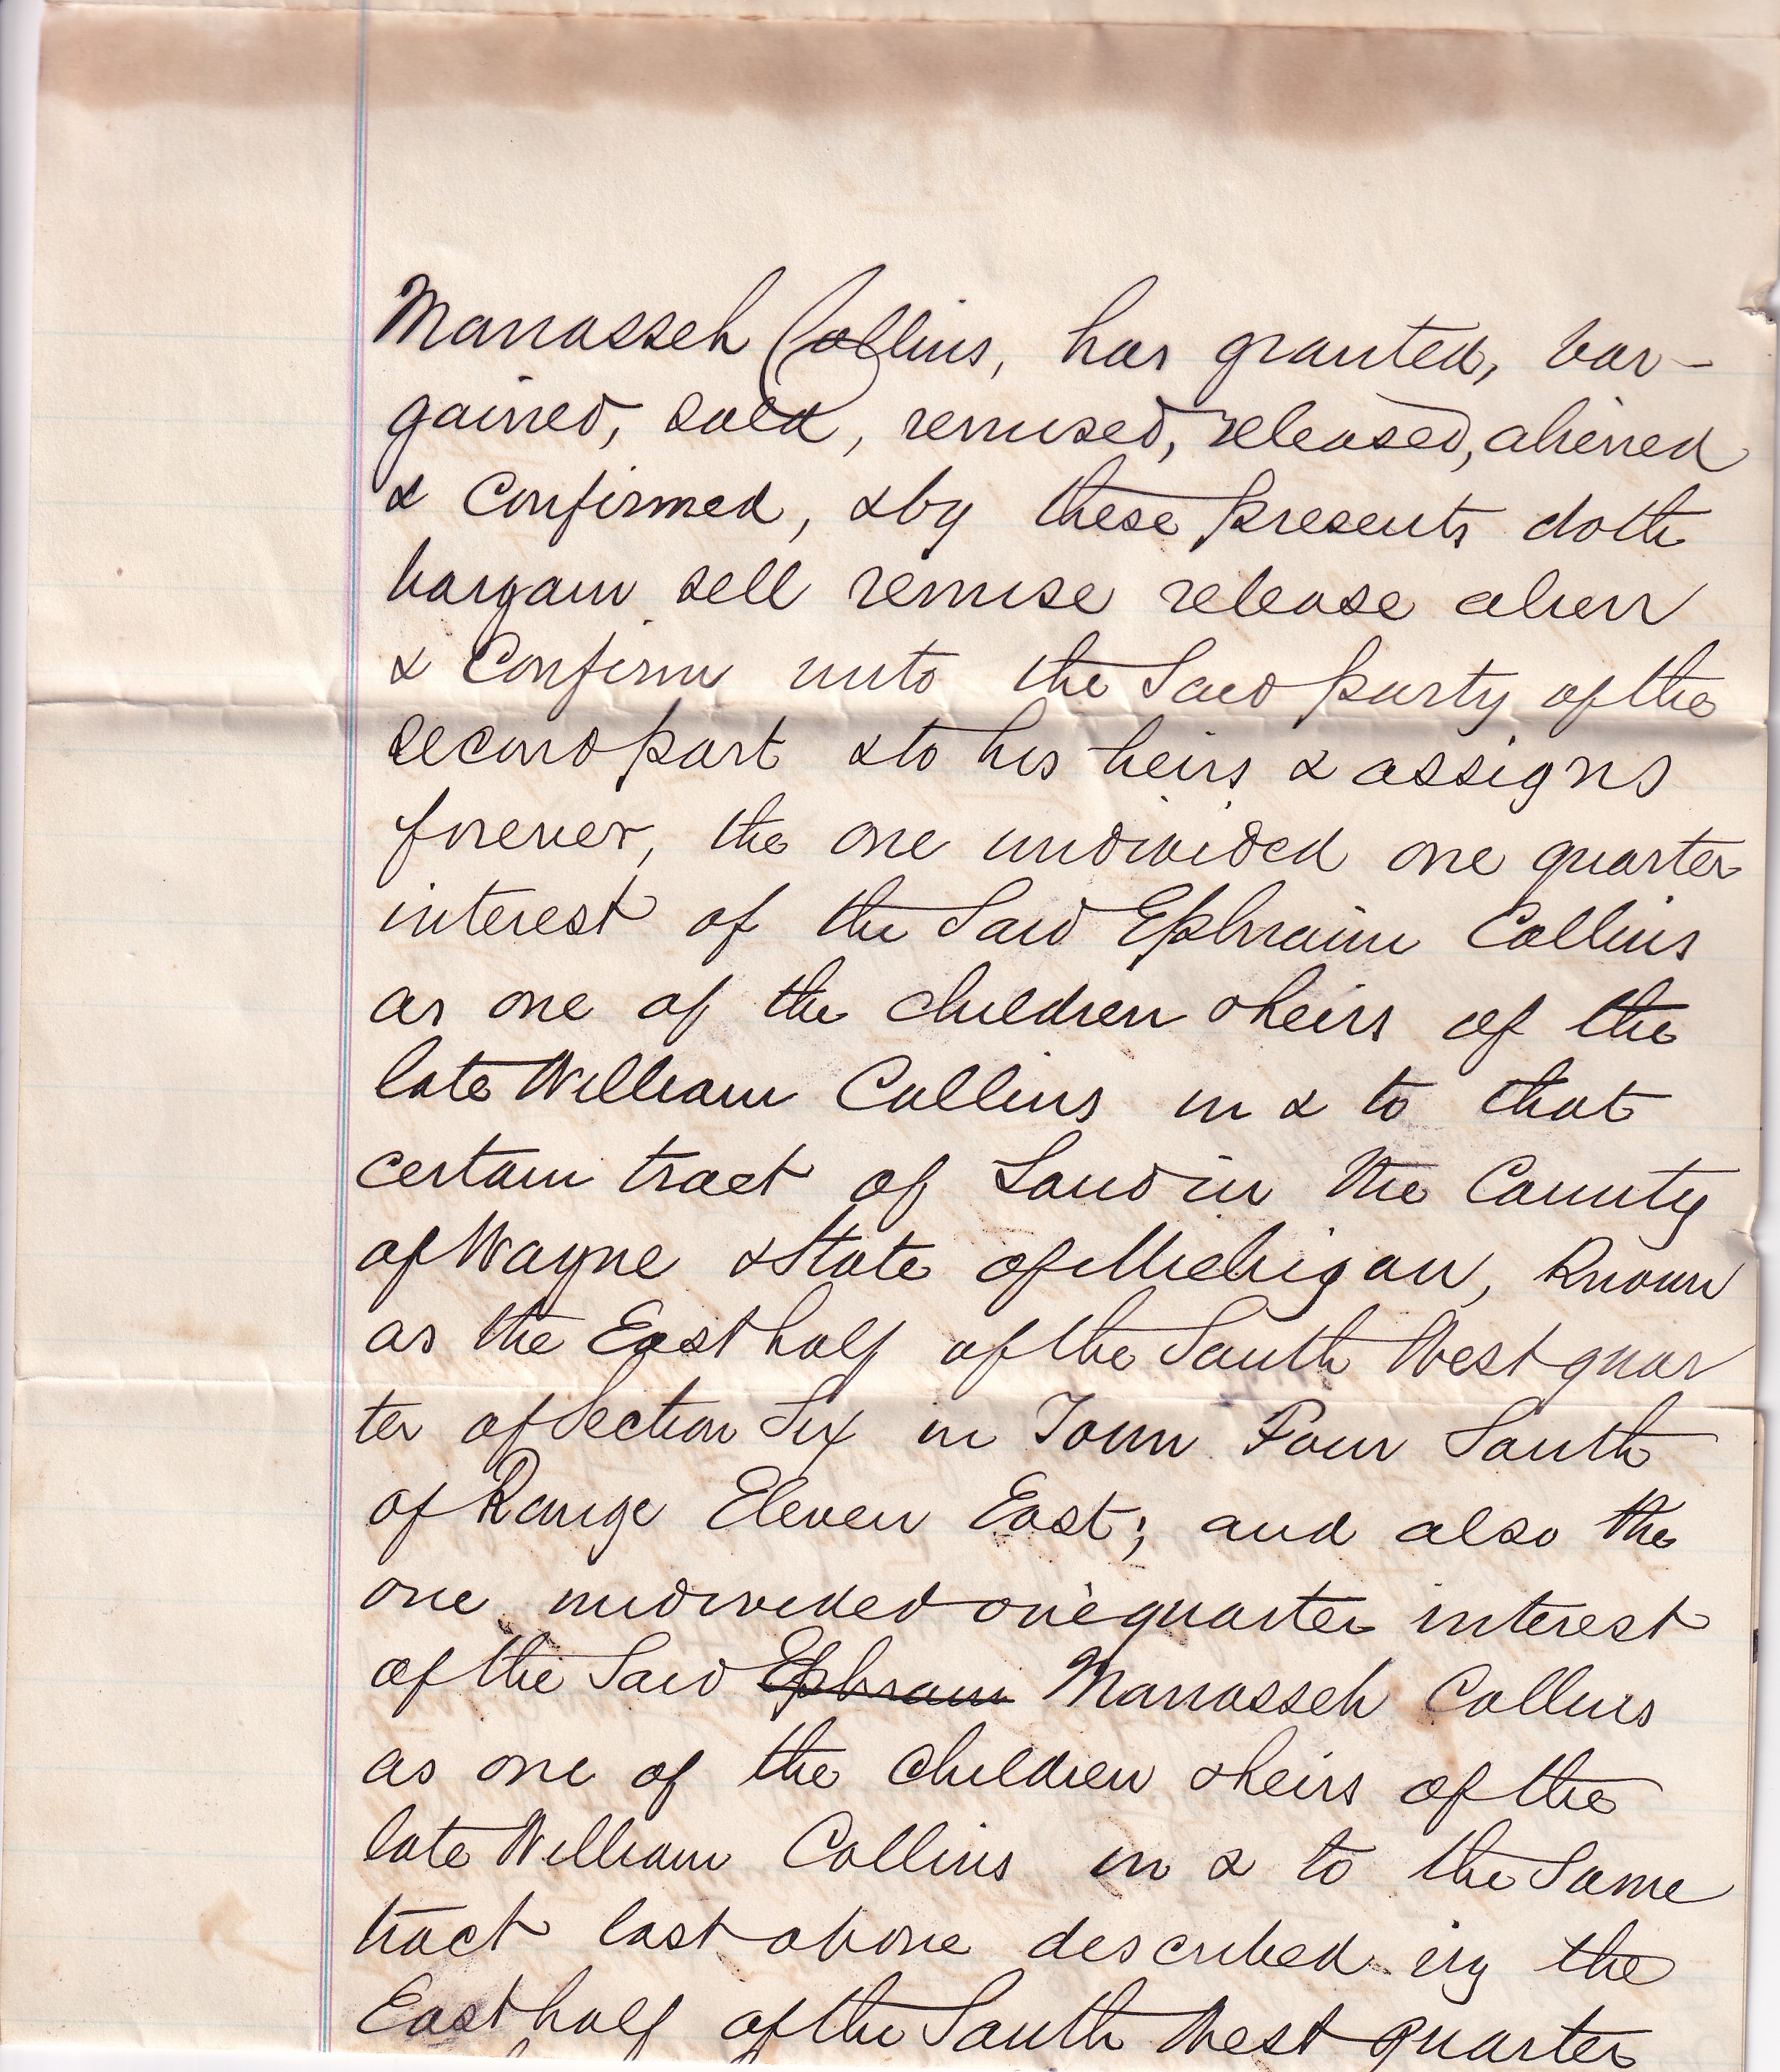 Manasseh Collins, has granted, bar-
gained, sold, remised, released, aliened
& Confirmed, & by these presents doth
bargain sell remise release alien
& Confirm unto the Said party of the
second part & to his heirs & assigns
forever, the one undivided one quarter
interest of the Said Ephraim Collins
as one of the children & heirs of the
late William Collins in & to that
certain tract of Land in the County
of Wayne & State of Michigan, Known
as the East half of the South West quar
ter of Section Six in Town Four South
of Range Eleven East; and also the
one undivided one quarter interest
of the Said Ephraim Manasseh Collins
as one of the children & heirs of the
late William Collins in & to the Same
tract last above described viz the
East half of the South West quarter